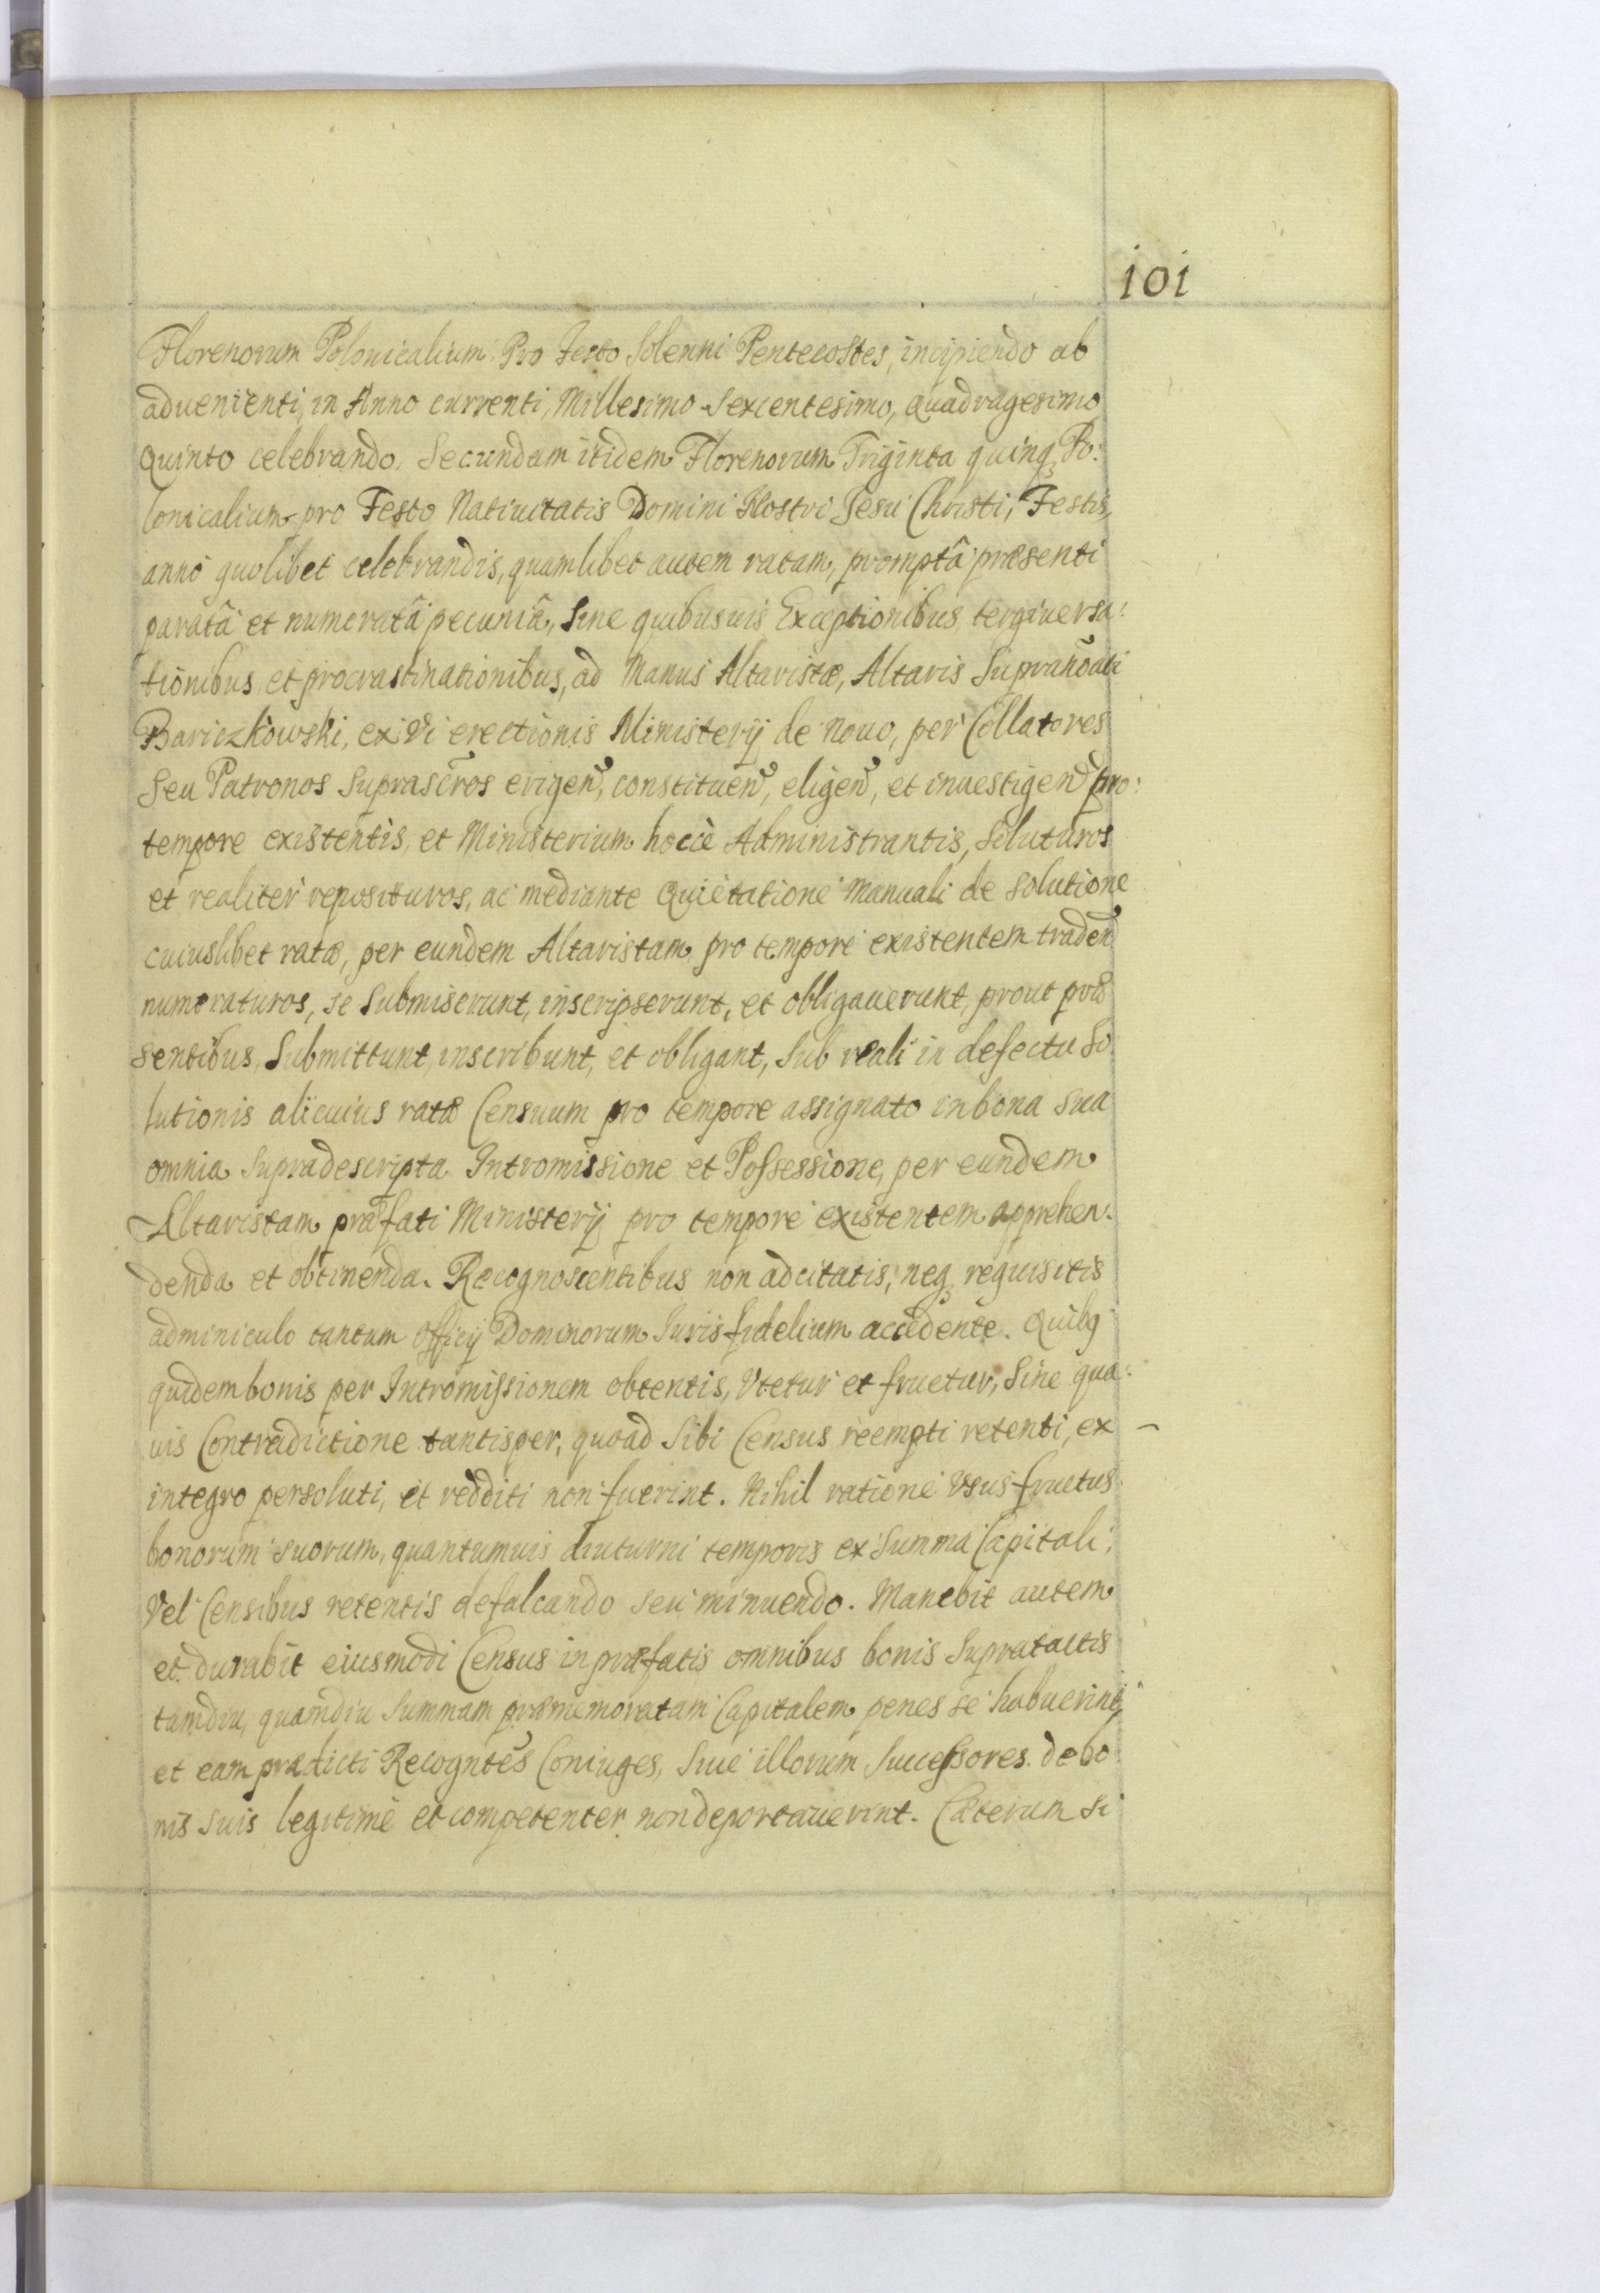 101
Florenorum Polonicalium Pro Festo Solenni Pentecostes, incipiendo ab
aduenienti, in Anno currenti, Millesimo Sexcentesimo, Quadragesimo
Quinto celebrando. Secundam itidem Florenorum Triginta quinq Po:
lonicalium pro Festo Natiuitatis Domini Nostri Jesu Christi, Festis,
anno quolibet celebrandis, quamlibet autem ratam, promptâ præsenti
paratâ et numeratâ pecuniâ, Sine quibusuis Exceptionibus tergiuersa:
tionibus, et procrastinationibus, ad Manus Altaristæ, Altaris Supranoati
Bariczkowski, ex Vi erectionis Ministerij de Nouo, per Collatores
Seu Patronos Suprascros erigen, constituen, eligen, et inuestigen pro:
tempore existentis, et Ministerium hocce Administrantis, Soluturos
et realiter reposituros, ac mediante Quietatione Manuali de Solutione
cuiuslibet ratæ, per eundem Altaristam pro tempore existentem traden
numeraturos, se Submiserunt, inscripserunt, et obligauerunt, prout præ
sentibus, Submittunt, inscribunt, et obligant, Sub reali in defectu So
lutionis alicuius ratæ Censuum pro tempore assignato in bona Sua
omnia Supradescripta Intromissione et Possessione, per eundem
Altaristam præfati Ministerij pro tempore existentem apprehen.
denda et obtinenda. Recognoscentibus non adcitatis, neq requisitis
adminiculo tantum Officij Dominorum Jurisfidelium accedente. Quibq
quidem bonis per Intromissionem obtentis, Vtetur et fruetur, Sine qua:
uis Contradictione tantisper, quoad Sibi Census reempti retenti, ex –
integro persoluti, et redditi non fuerint. Nihil ratione Vsusfructus
bonorum suorum, quantumuis diuturni temporis ex Summa Capitali,
Vel Censibus retentis defalcando seu minuendo. Manebit autem
et durabit eiusmodi Census in præfatis omnibus bonis Supratactis
tamdiu, quamdiu Summam præmemoratam Capitalem penes se habuerint,
et eam prædicti Recogntes Coniuges, Siue illorum Successores de bo
nis Suis legitimè et competenter non deportauerint. Cæterum Si